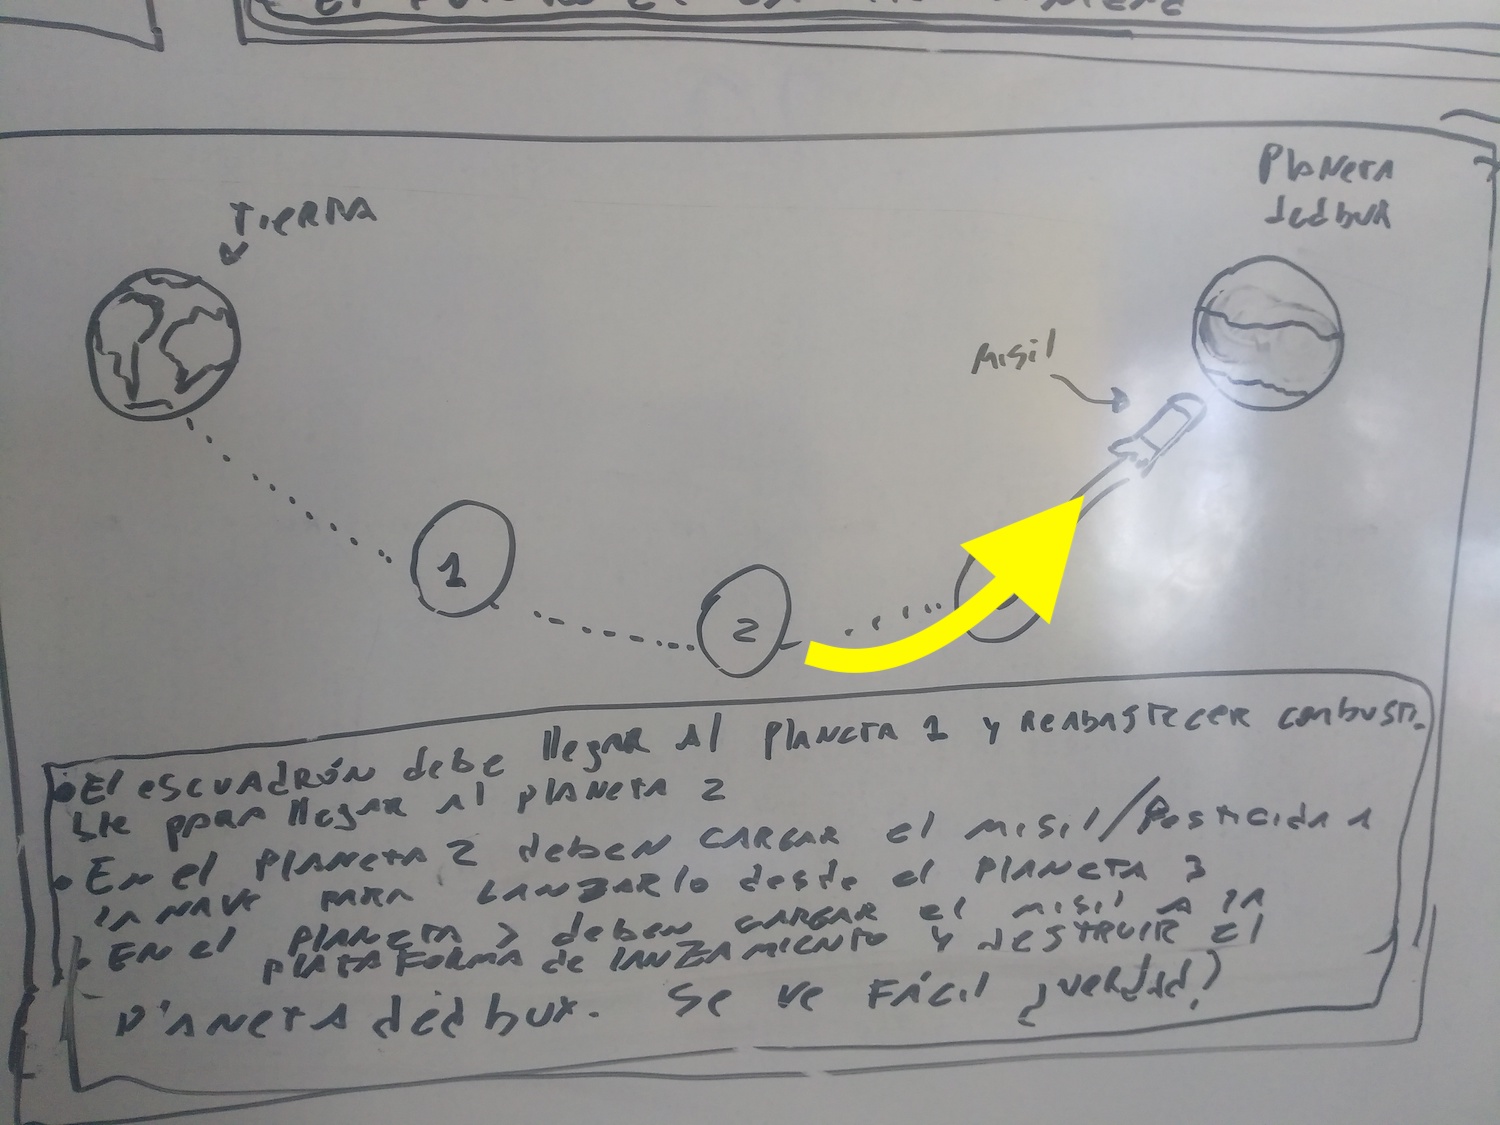 El
Tierra
Planeta
dedbux
misil
1
2
•El escuadrón debe llegar al planeta 1 y reabastecer combusti-
ble para llegar al planeta 2
• En el planeta 2 deben cargar el misil/pesticida a
la nave para lanzarlo desde el planeta 3
• En el planeta 3 deben cargar el misil a la
plataforma de lanzamiento y destruir el
planeta dedbux. Se ve fácil ¿verdad?